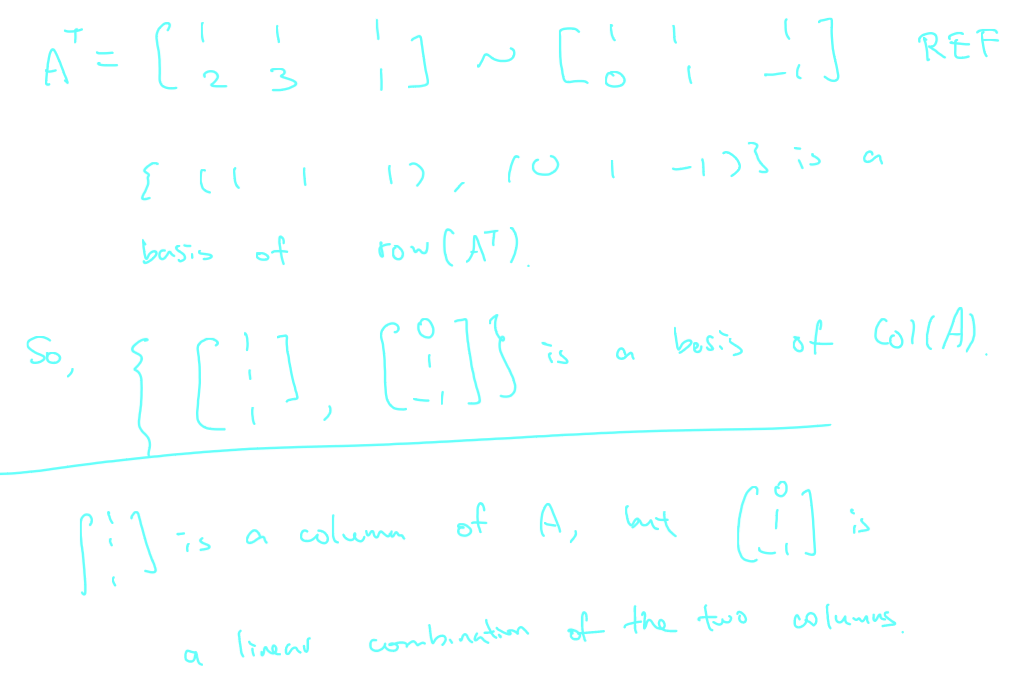 A^T = [ 1 1 1 ; 2 3 1 ] ~ [ 1 1 1 ; 0 1 -1 ] REF
{ (1 1 1), (0 1 -1) } is a
basis of row(A^T).
So, { [ 1 ; 1 ; 1 ], [ 0 ; 1 ; -1 ] } is a basis of Col(A).
[ 1 ; 1 ; 1 ] is a column of A, but [ 0 ; 1 ; -1 ] is
a linear combination of the two columns.